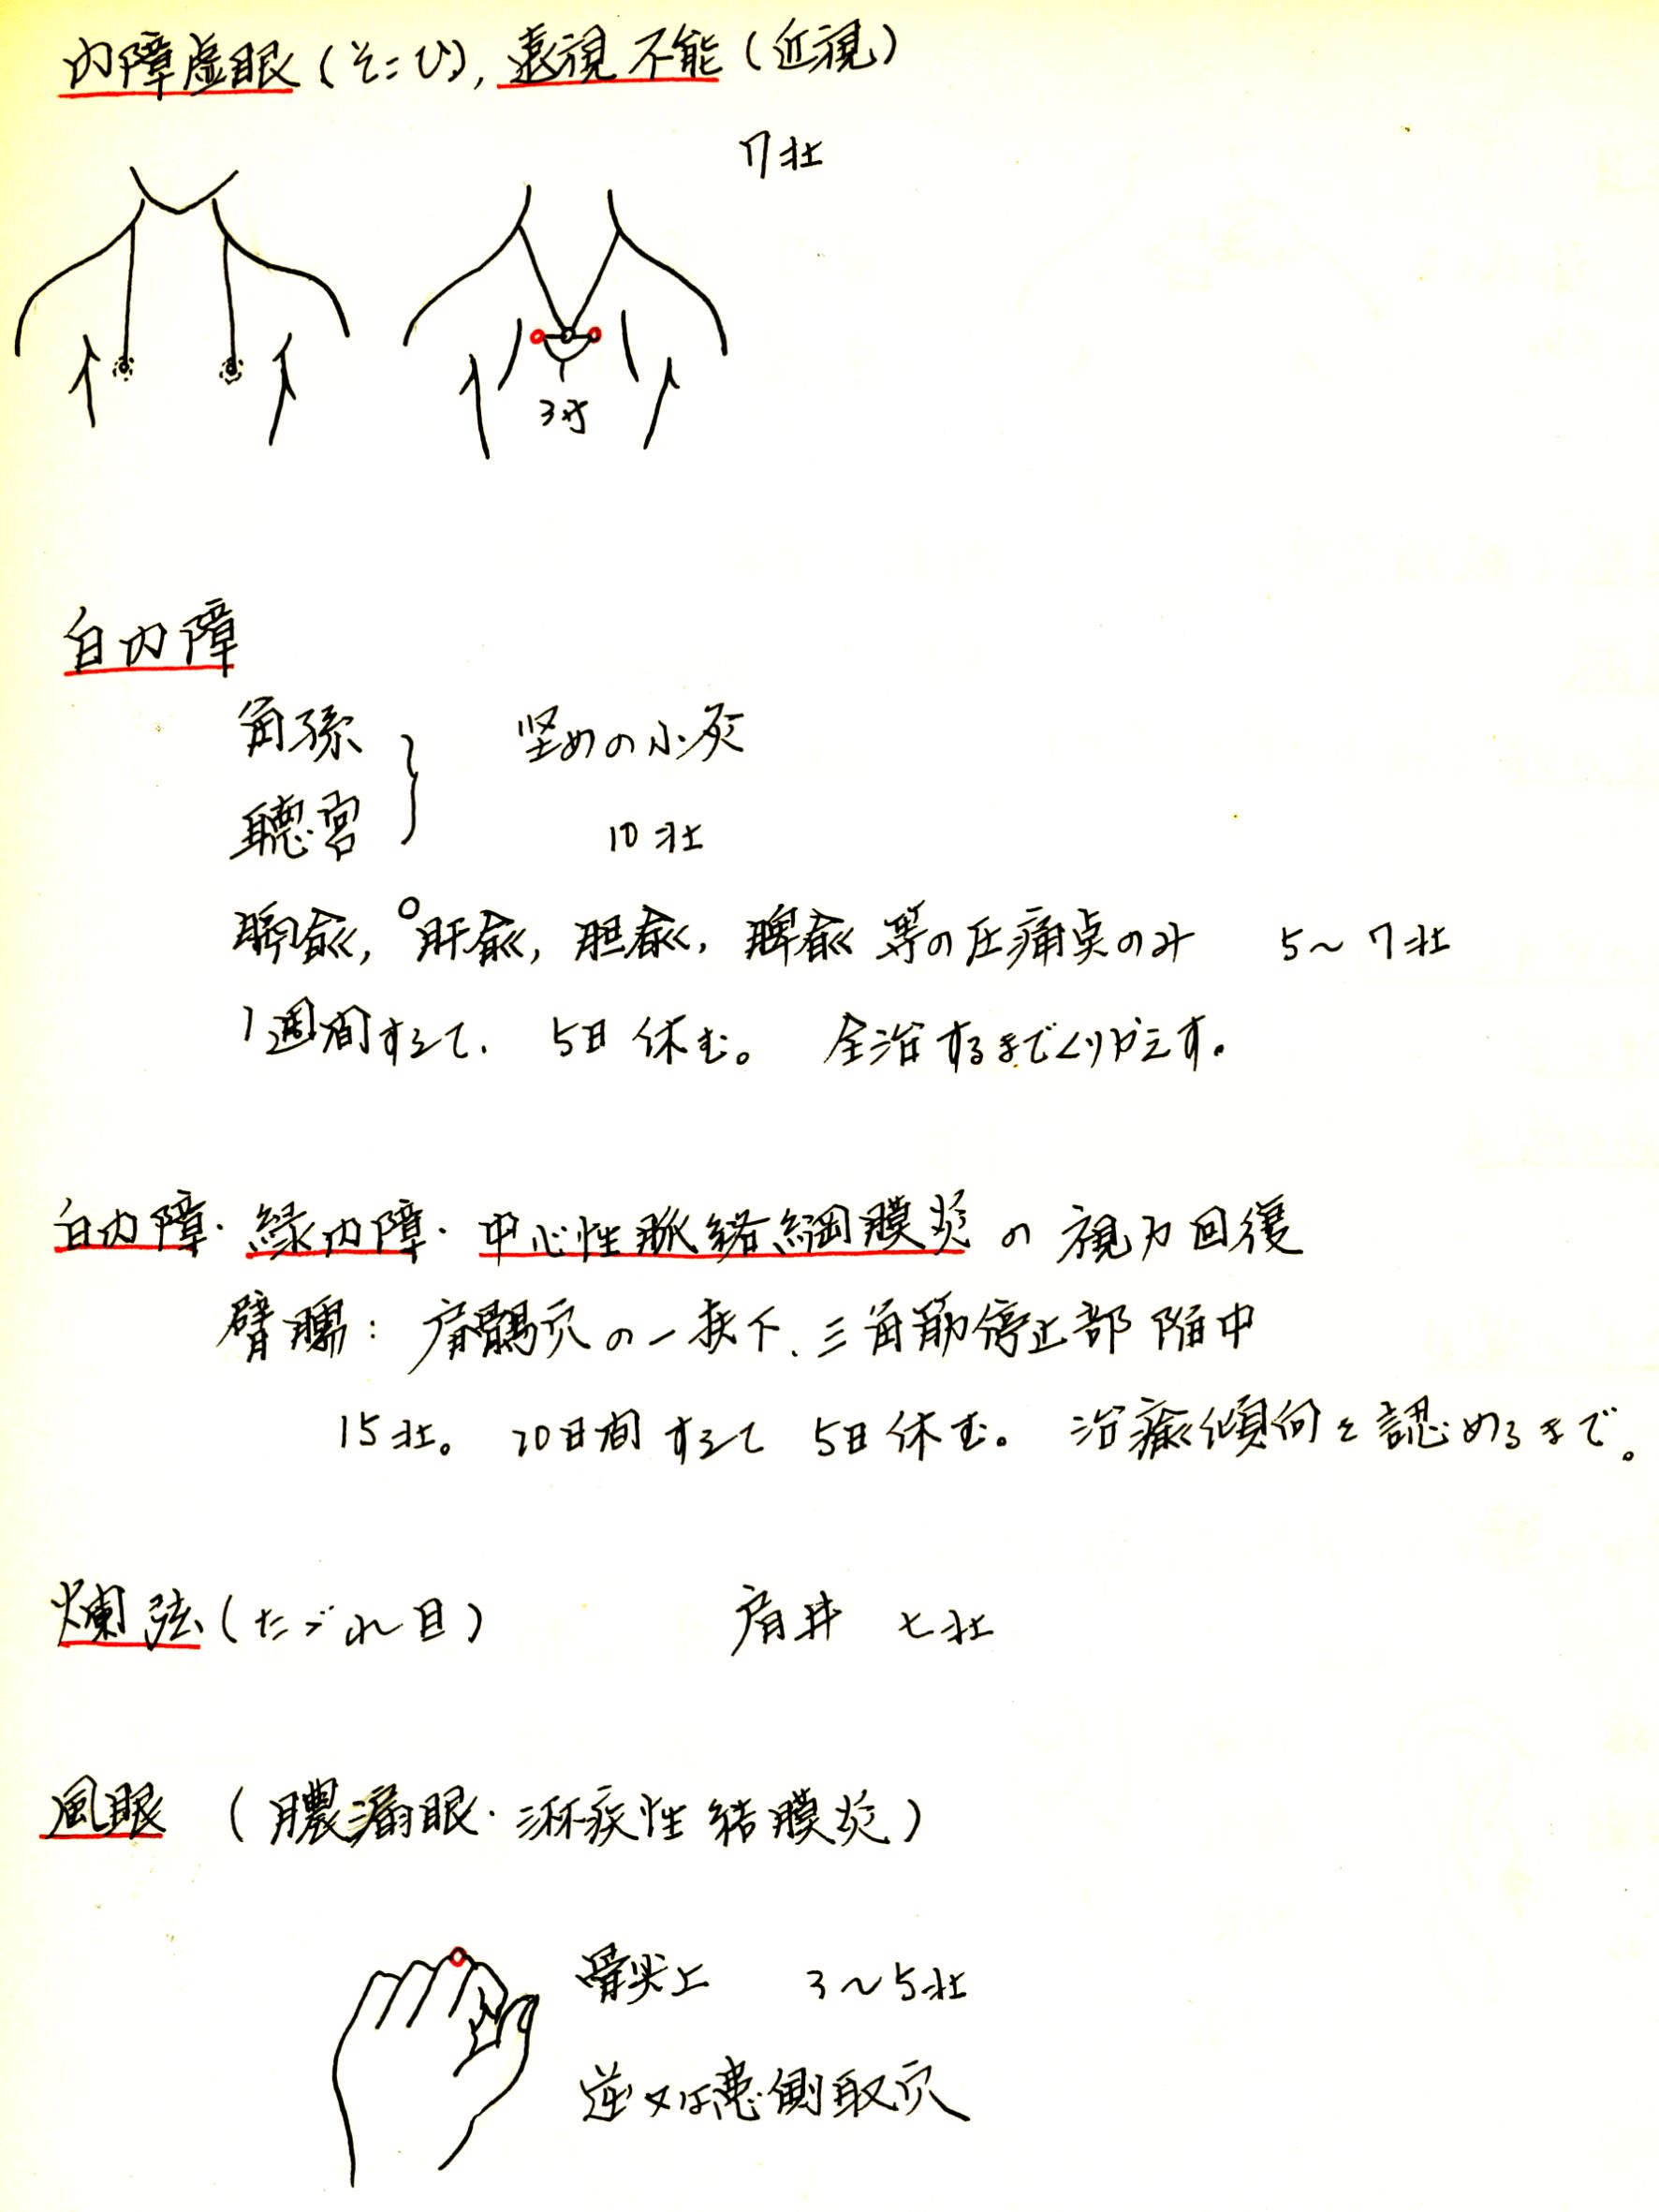 内障虚眼(そこひ), 遠視不能(近視)
7壮
3寸
白内障
角孫
堅めの小灸
聴宮
10壮
膈兪, 肝兪, 胆兪, 脾兪 等の圧痛点のみ 5〜7壮
1週間すえて. 5日休む。 全治するまでくりかえす。
白内障・緑内障・中心性脈絡網膜炎の視力回復
臂臑: 肩髃穴の一扶下、三角筋停止部 陥中
15壮。 20日間すえて 5日休む。 治癒傾向を認めるまで。
爛弦(たゞれ目) 肩井 七壮
風眼 (膿漏眼・淋疾性結膜炎)
骨尖上 3〜5壮
逆又は患側取穴